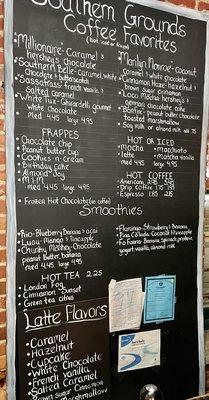 Southern Grounds
Coffee Favorites
(hot, iced or frozen)
• Millionaire - Caramel &
hershey's chocolate
• Southern Belle - caramel, white
chocolate & butterscotch
• Sassafras - french vanilla &
salted caramel
• White Tux - Ghirardelli gourmet
white chocolate
med 4.45 large 4.95
Marilyn Monroe - coconut
caramel & white chocolate
Cinnamon Haze - hazelnut &
brown sugar cinnamon
• Loco Mocha - hershey's &
german chocolate cake
• Bonfire - peanut butter, chocolate
toasted marshmallow
Soy milk or almond milk
FRAPPES
• Chocolate chip
• Peanut butter cup
• Cookies-n-Cream
• Birthday Cake
• Almond Joy
• M&M
med 4.45 large 4.95
• Frozen Hot Chocolate
HOT or ICED
• mocha • machiato
• latte • matcha vanilla
med 4.45 large 4.95
HOT COFFEE
• Americano
• Drip coffee
• Espresso
Smoothies
• Rio - Blueberry, Banana & acai
• Luau - Mango & Pineapple
• Chunky Monkey - Chocolate,
peanut butter, banana
med large 4.95
• Flamingo - Strawberry & Banana
• Pina Colada - Coconut & Pineapple
• Banana, Spinach, protein,
yogurt, vanilla
HOT TEA 2.25
• London Fog
• Cinnamon Sunset
• Green tea citrus
Latte Flavors
• Caramel
• Hazelnut
• Cupcake
• White Chocolate
• French Vanilla
• Salted Caramel
• Brown Sugar Cinnamon
Marshmallow